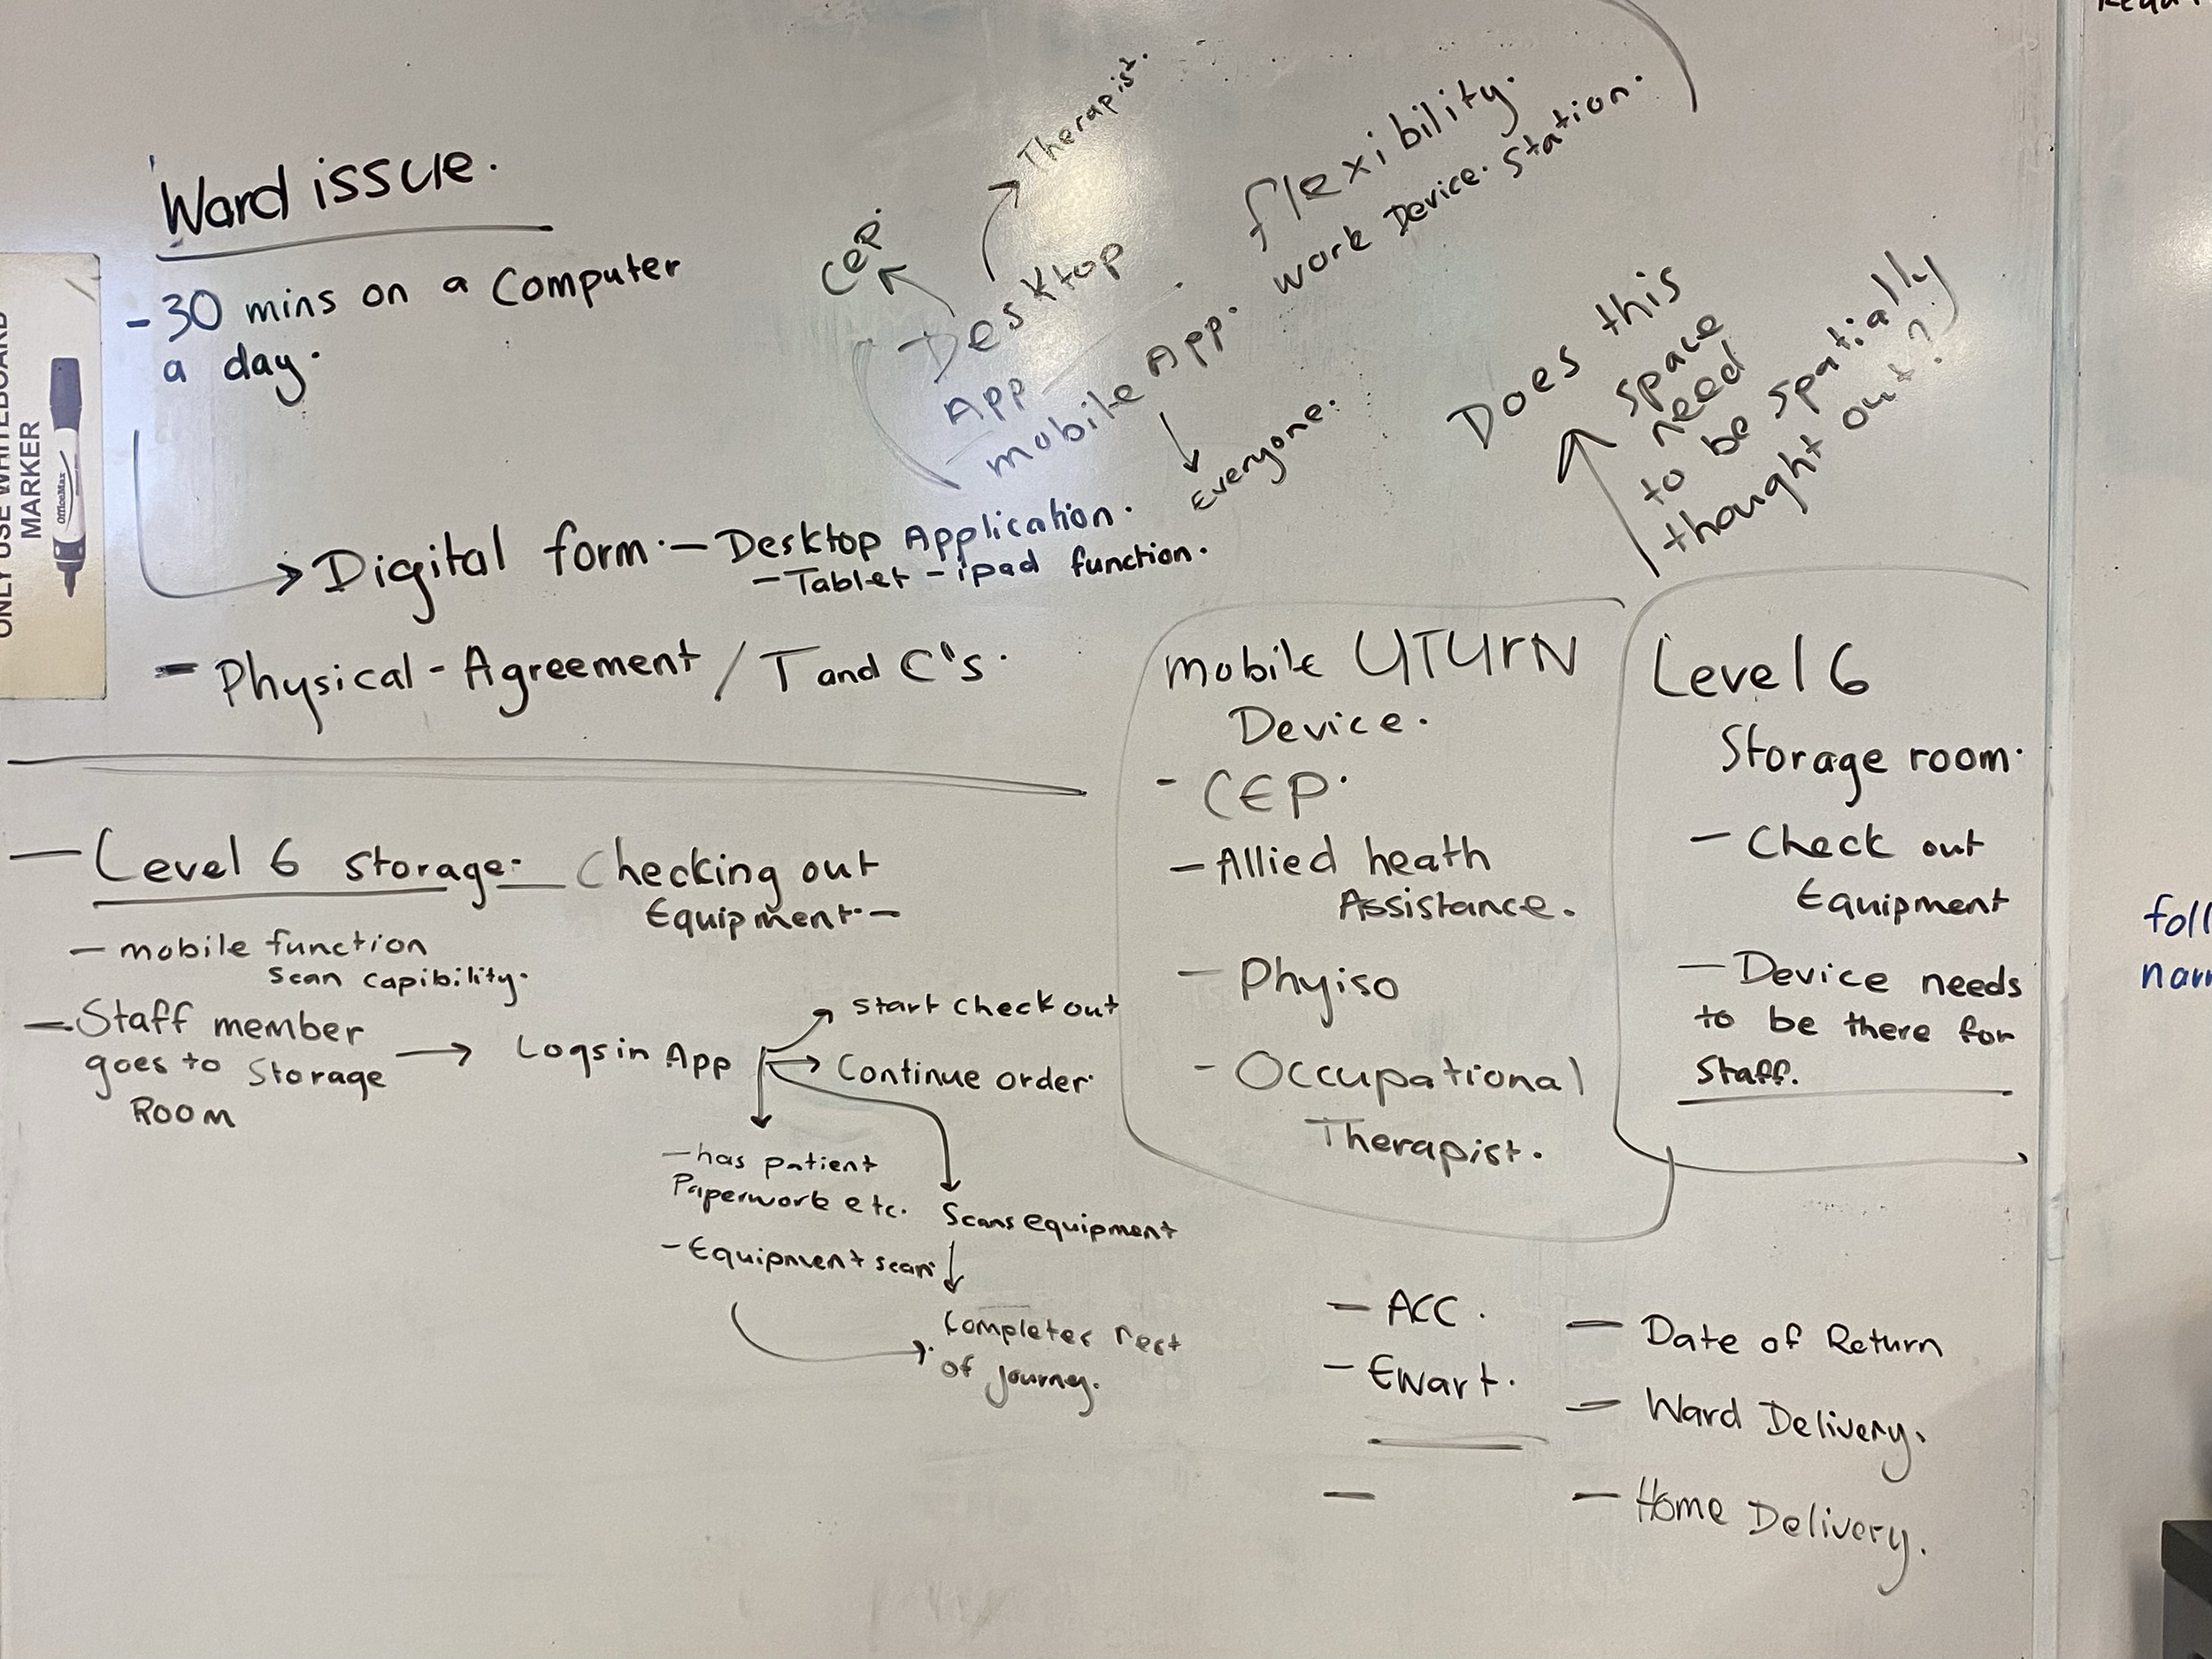 Ward issue.
- 30 mins on a Computer
a day.
Digital form. - Desktop Application.
- Tablet - ipad function.
- Physical - Agreement / T and C's.
Therapist.
CEP.
Desktop
App
mobile App.
Everyone.
flexibility.
work Device. Station.
Does this
space
need
to be spatially
thought out?
ONLY USE WHITEBOARD
MARKER
OfficeMax
- Level 6 storage. - Checking out
Equipment. -
- mobile function
scan capibility.
- Staff member
goes to Storage
Room
Logs in App
start check out
Continue order.
- has patient
Paperwork etc.
- Equipment scan
Scans equipment
Completes rest
of journey.
mobile UTUrN
Device.
- CEP.
- Allied heath
Assistance.
- Phyiso
- Occupational
Therapist.
Level 6
Storage room.
- Check out
Equipment
- Device needs
to be there for
Staff.
- ACC.
- Ewart.
-
- Date of Return
- Ward Delivery.
- Home Delivery.